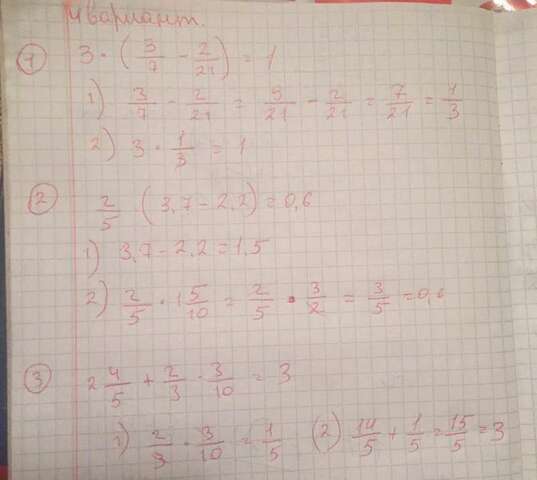 4 вариант.
① 3 · (3/7 - 2/21) = 1
1) 3/7 - 2/21 = 9/21 - 2/21 = 7/21 = 1/3
2) 3 · 1/3 = 1
② 2/5 · (3,7 - 2,2) = 0,6
1) 3,7 - 2,2 = 1,5
2) 2/5 · 1 5/10 = 2/5 · 3/2 = 3/5 = 0,6
③ 2 4/5 + 2/3 · 3/10 = 3
1) 2/3 · 3/10 = 1/5 (2) 14/5 + 1/5 = 15/5 = 3